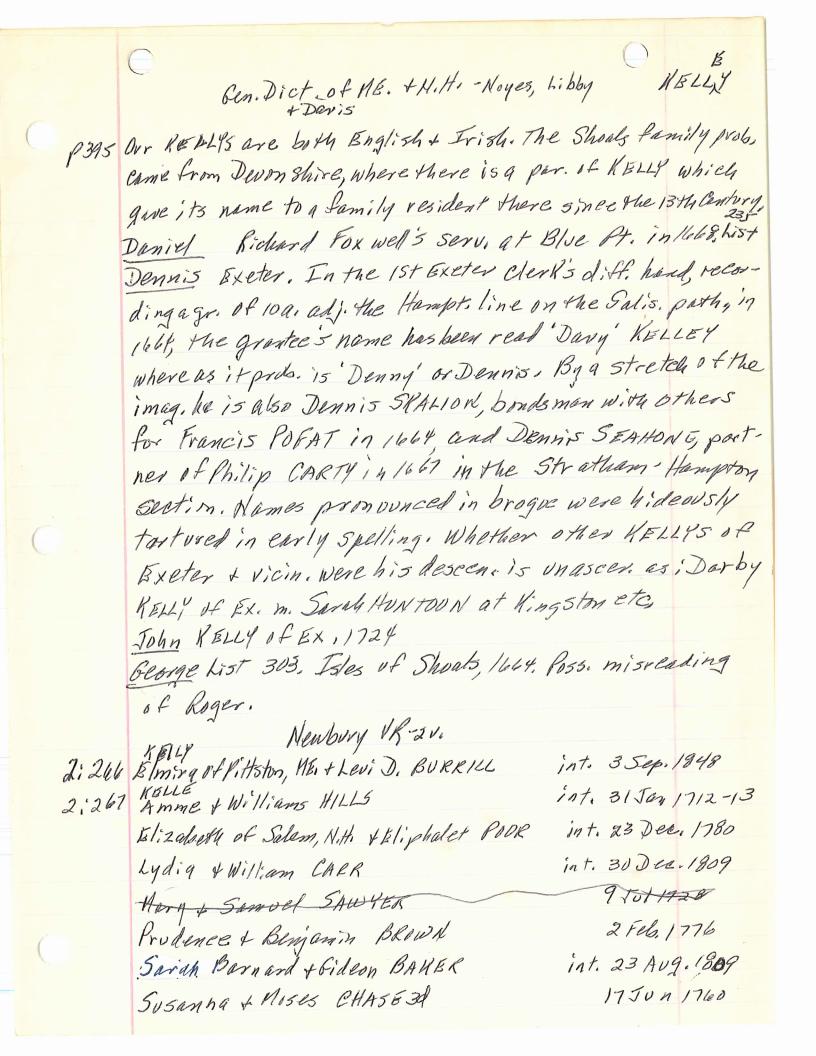 E
KELLY
Gen. Dict. of ME. + N.H. - Noyes, Libby
+ Davis
p395 Our KELLYs are both English + Irish. The Shoals family prob.
came from Devonshire, where there is a par. of KELLY which
gave its name to a family resident there since the 13th Century.
235
Daniel Richard Foxwell's serv. at Blue Pt. in 1668, List
Dennis Exeter. In the 1st Exeter clerk's diff. hand, recor-
ding a gr. of 10a. adj. the Hampt. line on the Salis. path, in
1664, the grantee's name has been read 'Davy' KELLEY
where as it prob. is 'Denny' or Dennis. By a stretch of the
imag. he is also Dennis SKALION, bondsman with others
for Francis POFAT in 1664, and Dennis SEAHONE, part-
ner of Philip CARTY in 1667 in the Stratham-Hampton
section. Names pronounced in brogue were hideously
tortured in early spelling. Whether other KELLYS of
Exeter + vicin. were his descen. is unascer. as; Darby
KELLY of Ex. m. Sarah HUNTOON at Kingston etc.
John KELLY of Ex. 1724
George List 303. Isles of Shoals, 1664. Poss. misreading
of Roger.
Newbury VR-2v.
KELLY
2:266 Elmira of Pittston, ME. + Levi D. BURRILL int. 3 Sep. 1848
KELLE
2:267 Amme + Williams HILLS int. 31 Jan 1712-13
Elizabeth of Salem, N.H. + Eliphalet POOR int. 23 Dec. 1780
Lydia + William CARR int. 30 Dec. 1809
Mary + Samuel SAWYER 9 Jul 1728
Prudence + Benjamin BROWN 2 Feb. 1776
Sarah Barnard + Gideon BAKER int. 23 Aug. 1809
Susanna + Moses CHASE 3d 17 Jun 1760